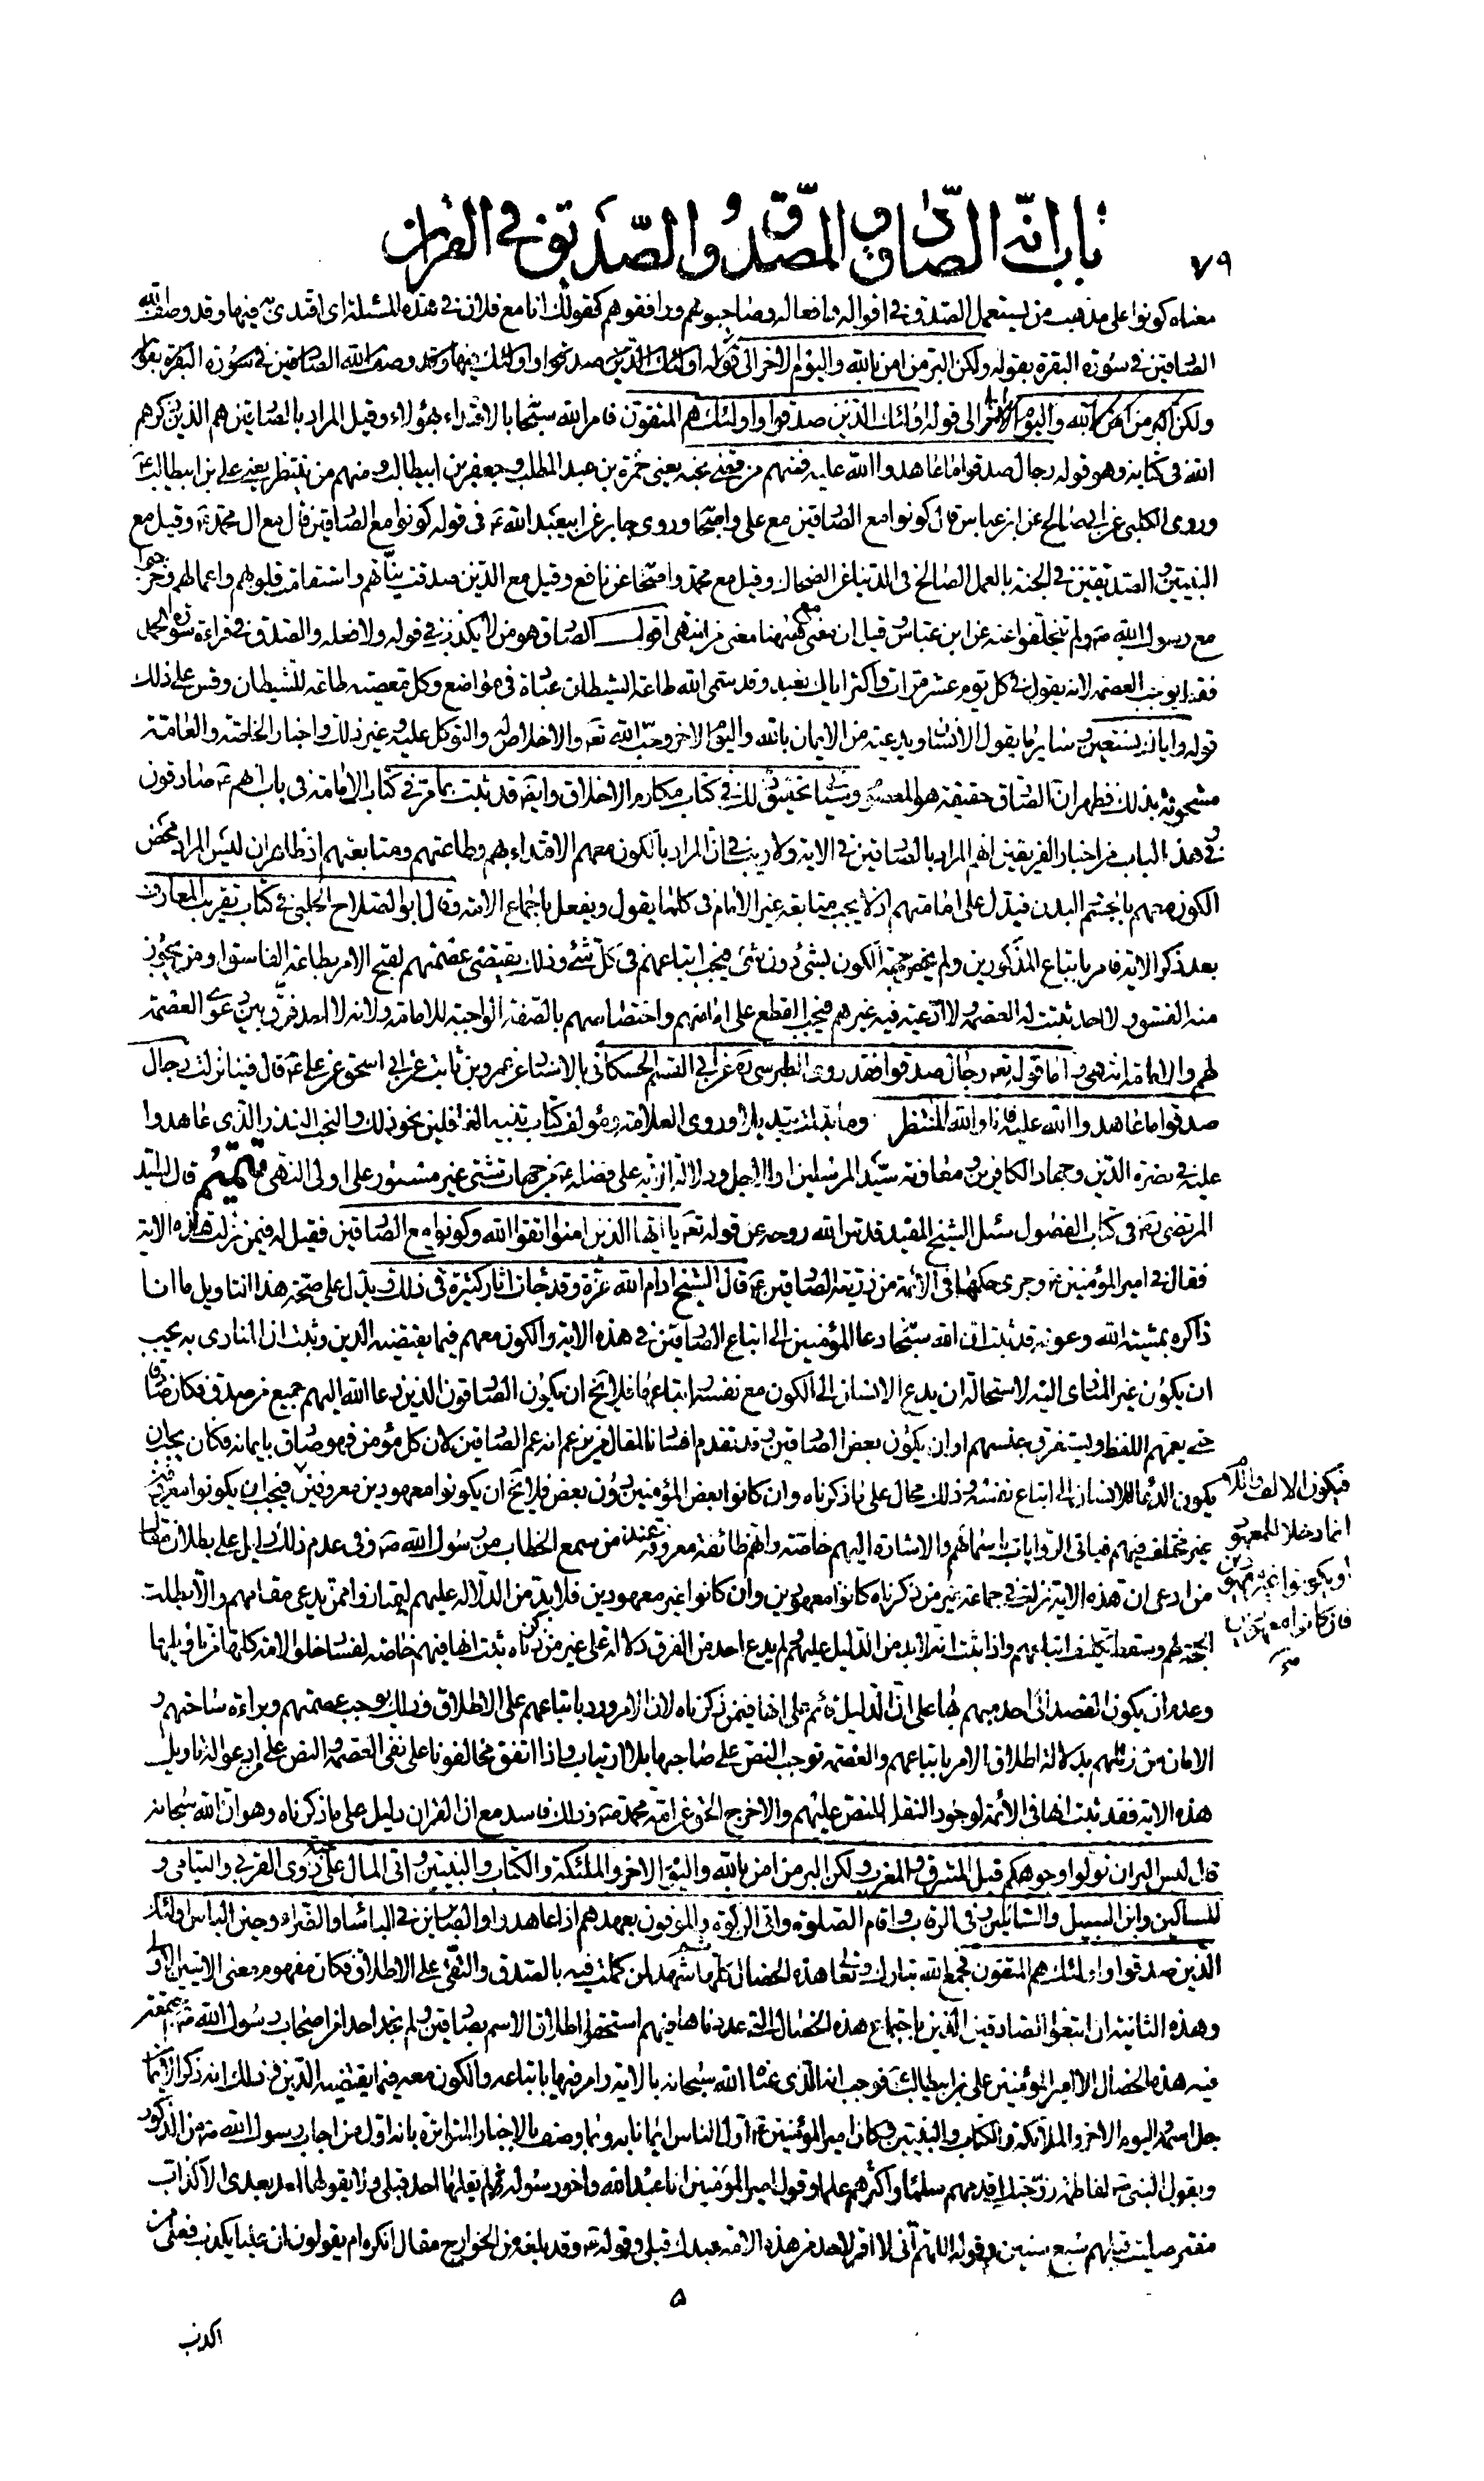 ٧٩
باب انه الصادق والمصدق والصديق في القران
معناه كونوا على مذهب من يستعمل الصدق في اقواله وافعاله وصاحبوهم ورافقوهم كقولك انا مع فلان في هذه المسئلة اى اقتدى به فيها وقد وصف الله
الصادقين في سورة البقرة بقوله ولكن البر من امن بالله واليوم الاخر الى قوله اولئك الذين صدقوا واولئك وقد وصف الله الصادقين في سورة البقرة بقوله
ولكن البر من امن بالله واليوم الاخر الى قوله اولئك الذين صدقوا واولئك هم المتقون فامر الله سبحانه بالاقتداء بهؤلاء وقيل المراد بالصادقين هم الذين ذكرهم
الله في كتابه وهو قوله رجال صدقوا ما عاهدوا الله عليه فمنهم من قضى نحبه يعنى حمزة بن عبد المطلب وجعفر بن ابيطالب ومنهم من ينتظر يعنى على بن ابيطالب ع
وروى الكلبى عن ابى صالح عن ابن عباس قال كونوا مع الصادقين مع على واصحابه وروى جابر عن ابيعبد الله ع في قوله كونوا مع الصادقين قال مع ال محمد ع وقيل مع
النبيين والصديقين في الجنة بالعمل الصالح في الدنيا عن الضحاك وقيل مع محمد واصحابه عن نافع وقيل مع الذين صدقت نياتهم واستقامت قلوبهم واعمالهم وخرجوا
مع رسول الله ص ولم يتخلفوا عنه عن ابن عباس وقيل ان معنى مع هيهنا معنى من انتهى اقول الصادق هو من لا يكذب في قوله ولا فعله والصدق في قراءة سورة الحمد
فقط يوجب العصمة لانه يقول في كل يوم عشر مرات واكثر اياك نعبد وقد سمى الله طاعة الشيطان عبادة في مواضع وكل معصية طاعة للشيطان وقس على ذلك
قوله واياك نستعين وساير ما يقول الانسان ويدعيه من الايمان بالله واليوم الاخر وحب الله تعه والاخلاص له والتوكل عليه وغير ذلك واخبار الخاصة والعامة
مشحونة بذلك فظهر ان الصادق حقيقة هو المعصوم وسيأتى تحقيق ذلك في كتاب مكارم الاخلاق وايضا قد ثبت بما مر في كتاب الامامة في باب انهم ع صادقون
وفى هذا الباب من اخبار الفريقين انهم المراد بالصادقين في الاية ولا ريب في ان المراد بالكون معهم الاقتداء بهم وطاعتهم ومتابعتهم اذ ظاهر ان ليس المراد محض
الكون معهم بالجسم والبدن فيدل على امامتهم اذ لا يجب متابعة غير الامام في كلما يقول ويفعل باجماع الامة وقال ابو الصلاح الحلبى في كتاب تقريب المعارف
بعد ذكر الاية فامر باتباع المذكورين ولم يخص جهة الكون بشئ دون شئ فيجب اتباعهم في كل شئ وذلك يقتضى عصمتهم لقبح الامر بطاعة الفاسق او من يجوز
منه الفسق ولا احد ثبتت له العصمة ولا ادعيت فيه غيرهم فيجب القطع على امامتهم واختصاصهم بالصفة الواجبة للامامة ولانه لا احد فرق بين دعوى العصمة
لهم والامامة انتهى واما قوله تعه رجال صدقوا فقد روى الطبرسى ره عن ابى القسم الحسكانى بالاسناد عن عمرو بن ثابت عن ابى اسحق عن على ع قال فينا نزلت رجال
صدقوا ما عاهدوا الله عليه فانا والله المنتظر وما بدلت تبديلا وروى العلامة ومؤلف كتاب تنبيه الغافلين نحو ذلك والنحب النذر الذى عاهدوا
عليه في نصرة الدين وجهاد الكافرين ومعاونة سيد المرسلين والاجل ودلالة الاية على فضله ع من جهات شتى غير مستور على اولى النهى تتميم قال السيد
المرتضى ره في كتاب الفصول سئل الشيخ المفيد قدس الله روحه عن قوله تعه يا ايها الذين امنوا اتقوا الله وكونوا مع الصادقين فقيل له فيمن نزلت هذه الاية
فقال في امير المؤمنين ع وجرى حكمها في الائمة من ذريته الصادقين ع قال الشيخ ادام الله عزه وقد جاءت اثار كثيرة في ذلك ويدل على صحة هذا التاويل ما انا
ذاكره بمشية الله وعونه قد ثبت ان الله سبحانه دعا المؤمنين الى اتباع الصادقين في هذه الاية والكون معهم فيما يقتضيه الدين وثبت ان المنادى به يجب
ان يكون غير المنادى اليه لاستحالة ان يدعى الانسان الى الكون مع نفسه واتباعها فلا يخ ان يكون الصادقون الذين دعا الله اليهم جميع من صدق فكان صادقا
حتى يعمهم اللفظ ويستغرق جنسهم او ان يكون بعض الصادقين وقد تقدم افسادنا لمقال من زعم انه عم الصادقين لان كل مؤمن فهو صادق بايمانه فكان يجب ان
يكون الدعاء للانسان الى اتباع نفسه وذلك محال على ما ذكرناه وان كانوا بعض المؤمنين دون بعض فلا يخ ان يكونوا معهودين معروفين فيجب ان يكونوا معروفين
غير مختلف فيهم فياتى الروايات باسمائهم والاشارة اليهم خاصة وانهم طائفة معروفة عند من سمع الخطاب من رسول الله ص وفى عدم ذلك دليل على بطلان مقال
من ادعى ان هذه الاية نزلت في جماعة غير من ذكرناه كانوا معهودين وان كانوا غير معهودين فلا بد من الدلالة عليهم ليمتازوا ممن يدعى مقامهم والا بطلت
الحجة لهم وسقط تكليف اتباعهم واذا ثبت انه لا بد من الدليل عليهم ولم يدع احد من الفرق دلالة على غير من ذكرناه ثبت انها فيهم خاصة لفساد خلو الامة كلها من تاويلها
وعدم ان يكون القصد الى احد منهم بها على ان الدليل قائم على انها فيمن ذكرناه لان الامر ورد باتباعهم على الاطلاق وذلك يوجب عصمتهم وبراءة ساحتهم و
الامان من زللهم بدلالة اطلاق الامر باتباعهم والعصمة توجب النص على صاحبها بلا ارتياب واذا اتفق مخالفونا على نفى العصمة والنص على من ادعوا له تاويل
هذه الاية فقد ثبت انها في الائمة لوجود النقل للنص عليهم والا خرج الحق عن امة محمد ص وذلك فاسد مع ان القران دليل على ما ذكرناه وهو ان الله سبحانه
قال ليس البر ان تولوا وجوهكم قبل المشرق والمغرب ولكن البر من امن بالله واليوم الاخر والملئكة والكتاب والنبيين واتى المال على حبه ذوى القربى واليتامى و
المساكين وابن السبيل والسائلين وفى الرقاب واقام الصلوة واتى الزكوة والموفون بعهدهم اذا عاهدوا والصابرين في الباساء والضراء وحين الباس اولئك
الذين صدقوا واولئك هم المتقون فجمع الله تبارك وتعالى هذه الخصال كلها ثم شهد لمن كملت فيه بالصدق والتقى على الاطلاق فكان مفهوم معنى الايتين الاولى
وهذه الثانية ان اتبعوا الصادقين الذين باجتماع هذه الخصال التى عددناها فيهم استحقوا اطلاق الاسم بصادقين ولم نجد احدا من اصحاب رسول الله ص اجتمعت
فيه هذه الخصال الا امير المؤمنين على بن ابيطالب ع فوجب انه الذى عناه الله سبحانه بالاية وامر فيها باتباعه والكون معه فيما يقتضيه الدين وذلك انه ذكر الايمان
جل اسمه واليوم الاخر والملائكة والكتاب والنبيين وكان امير المؤمنين ع اول الناس ايمانا به وبما وصف بالاخبار المتواترة بانه اول من اجاب رسول الله ص من الذكور
وبقول النبى ص لفاطمة زوجتك اقدمهم سلما واكثرهم علما وقول امير المؤمنين انا عبد الله واخو رسوله لم يقلها احد قبلى ولا يقولها احد بعدى الا كذاب
مفتر صليت قبلهم سبع سنين وقوله اللهم انى لا اقر لاحد من هذه الامة عبدك قبلى وقوله ع وقد بلغه من الخوارج مقال انكره ام يقولون ان عليا يكذب فعلى من
فيكون الالف واللام
انما دخلا للمعهود
او يكونوا غير معهودين
فان كانوا معهودين
صح
٥
اكذب